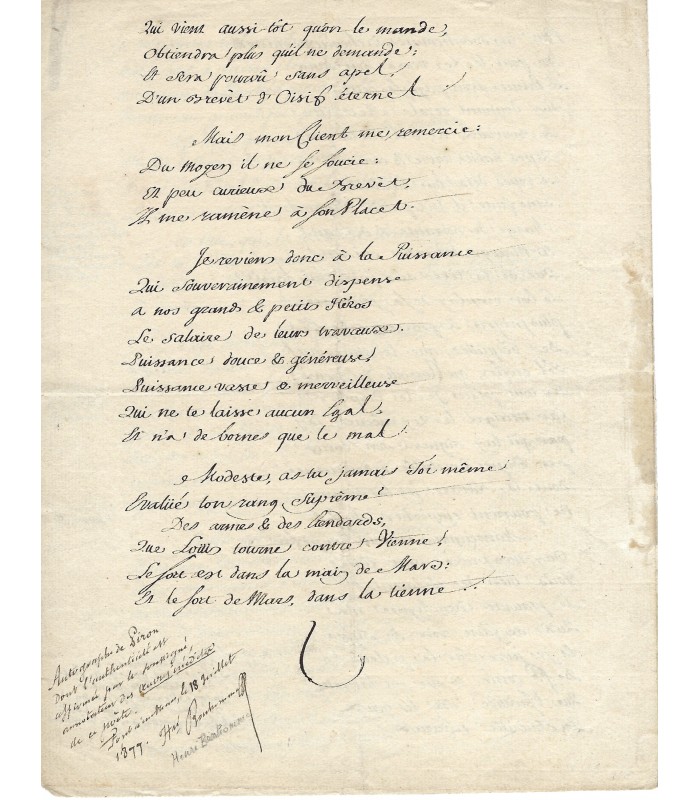 Qui vient aussi tôt qu'on le mande,
Obtiendra plus qu'il ne demande;
Et sera pourvû sans apel,
D'un Brevèt d'Oisif éternel
Mais mon Client me remercie:
Du Moyen il ne se soucie:
Et peu curieux du Brevèt,
Il me ramène à son Placet.
Je reviens donc à la Puissance
Qui souverainement dispense
a nos grands & petits Héros
Le salaire de leurs travaux.
Puissance douce & généreuse!
Puissance vaste & merveilleuse
Qui ne te laisse aucun Egal,
Et n'a de bornes que le mal!
Modeste, as tu jamais Toi même
Evalüé ton rang Suprême?
Des armes & des Etendards,
Que tourne contre Vienne!
Le sort est dans la main de Mars:
Et le sort de Mars, dans la tienne.
Autographe de Piron
dont l'authenticité est
affirmée par le soussigné,
annotateur des œuvres inédites
de ce poëte.
le 18 Juillet
1877. Hré Bonhomme
Henri Bonhomme